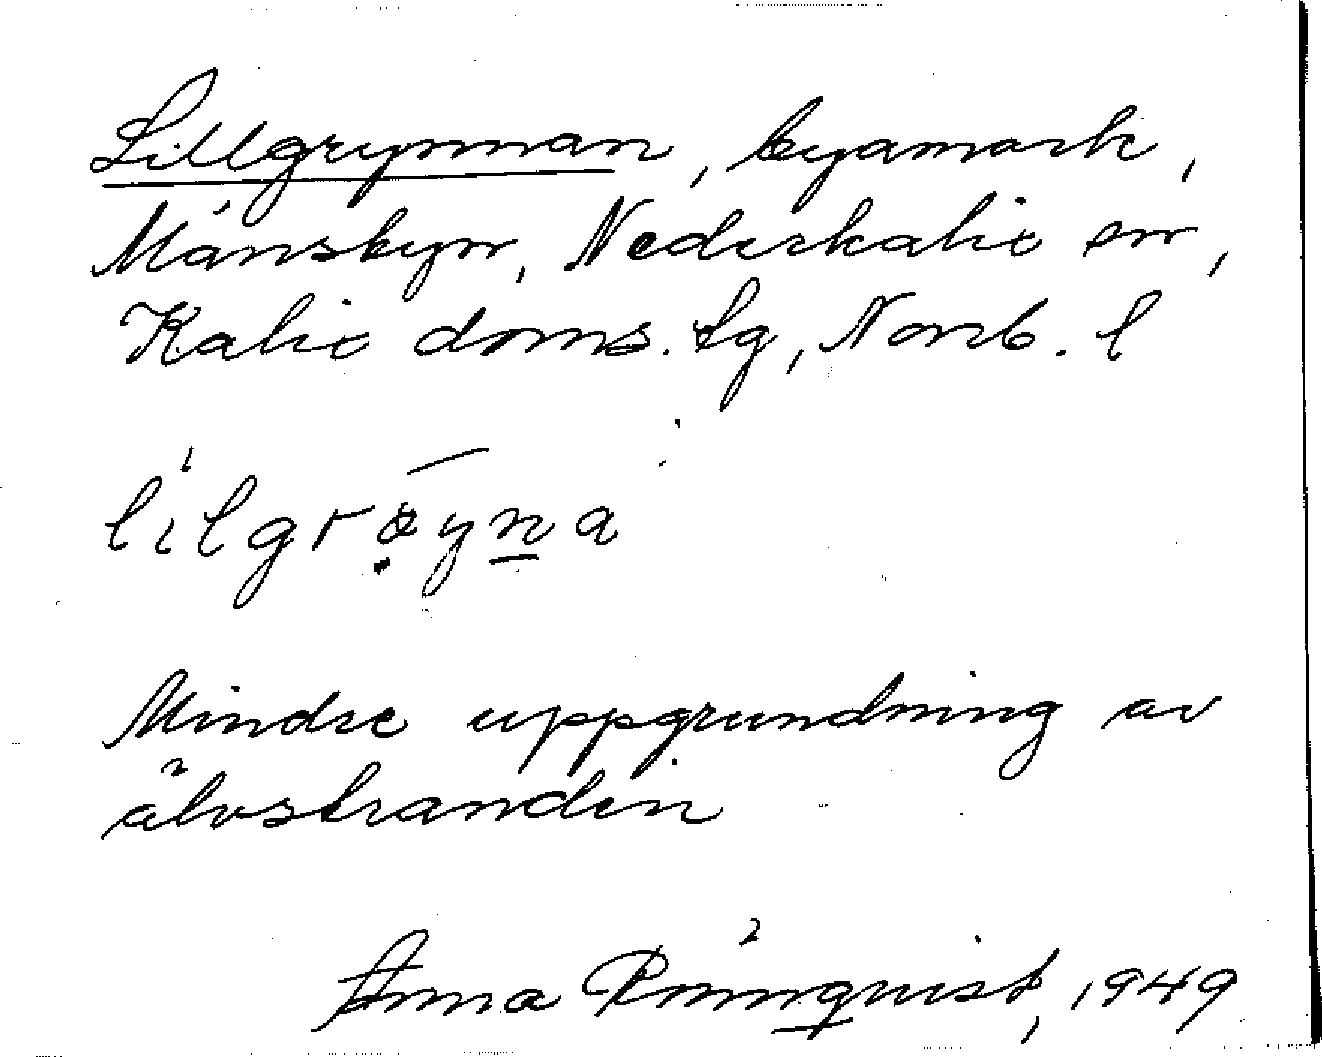 Lillgrynnan, byamark,
Månsbyn, Nederkalix sn,
Kalix doms. tg, Norrb. l
lilgröyna
Mindre uppgrundning av
älvstranden
Anna Rönnqvist, 1949